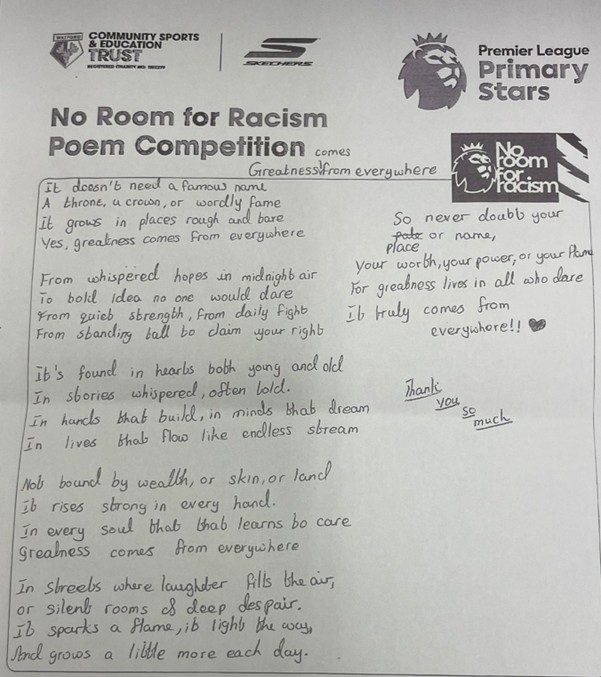 WATFORD
COMMUNITY SPORTS
& EDUCATION
TRUST
SKECHERS
Premier League
Primary
Stars
No Room for Racism
Poem Competition
No
room
for
racism
comes
Greatness from everywhere
It doesn't need a famous name
A throne, a crown, or wordly fame
It grows in places rough and bare
Yes, greatness comes from everywhere
From whispered hopes in midnight air
To bold Idea no one would dare
From quiet strength, from daily fight
From standing tall to claim your right
It's found in hearts both young and old
In stories whispered, often bold.
In hands that build, in minds that dream
In lives that flow like endless stream
Not bound by wealth, or skin, or land
It rises strong in every hand.
In every soul that that learns to care
Greatness comes from everywhere
In streets where laughter fills the air,
or silent rooms of deep despair.
It sparks a flame, it light the way,
And grows a little more each day.
So never doubt your
or name,
place
Your worth, your power, or your flame
For greatness lives in all who dare
It truly comes from
everywhere!! ♥
Thank
you
so
much